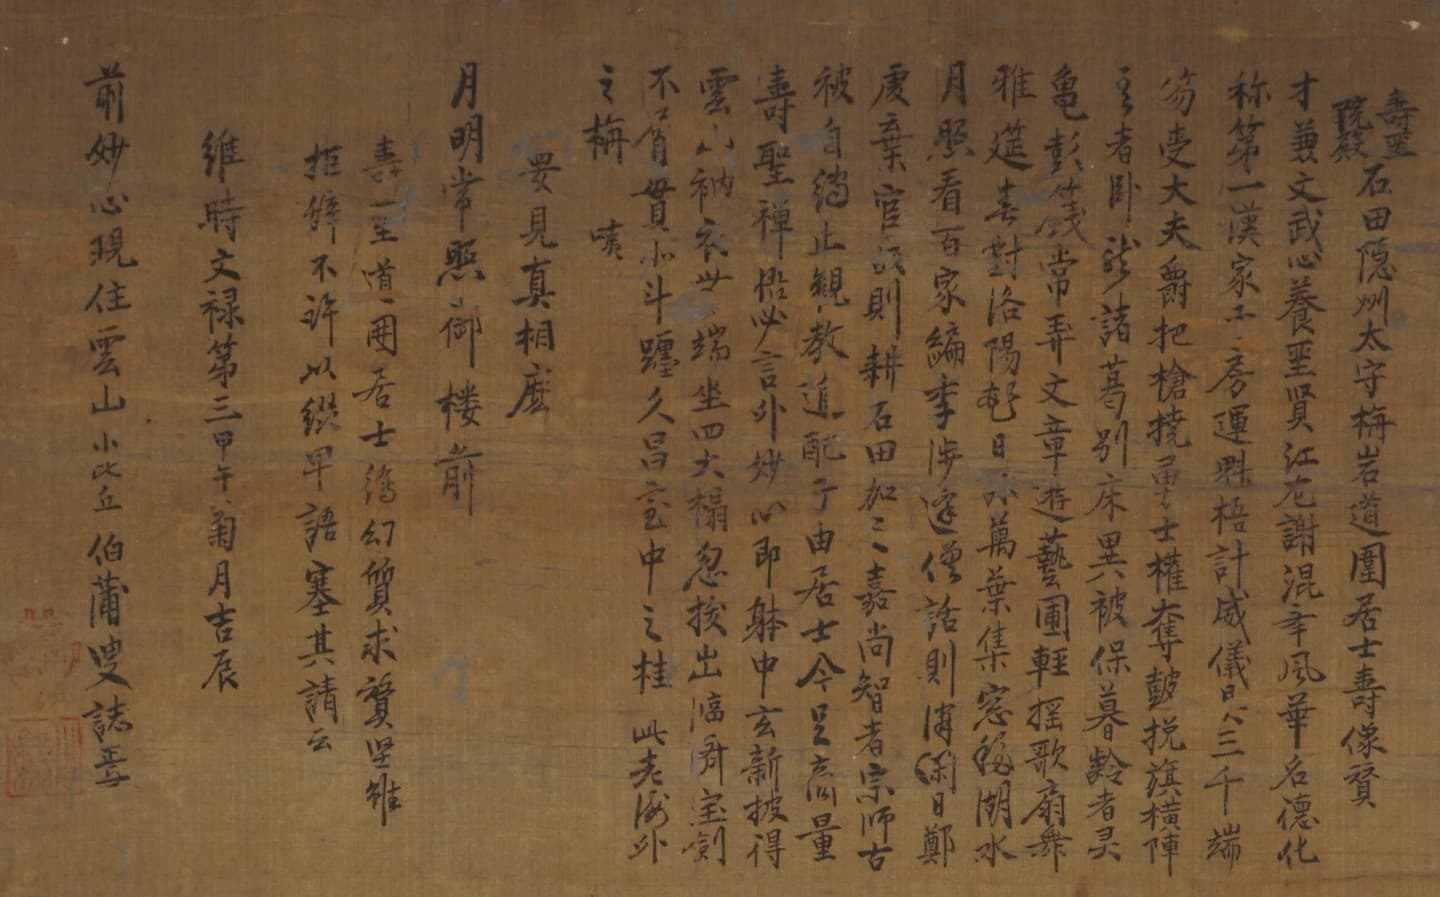 壽聖
院殿
石田隠州太守梅岩道圍居士壽像賛
才兼文武心養聖賢江左謝混辛風華名德化
称第一漢家子房運魁梧計威儀三千端
笏受大夫爵把槍撓勇士權奪皷挽旗横陣
者卧諸葛別床異被保暮齢者灵
亀彭箋常弄文章遊藝圃軽揺歌扇舞
雅筵春對洛陽日萬葉集窓湖水
月照看百家編李渉逢僧話則閑日鄭
虔棄官則耕石田加之嘉尚智者宗師古
被自繞止観教追配子由居士今足商量
壽聖禅必言外妙心即躰中玄新披得
雲衲衣世端坐四大榻忽捘出宝劍
不肯貫北斗躔久昌室中之桂此老海外
之梅 咦
要見真相麽
月明常照御楼前
壽聖道圍居士冩幻質求賛望雖
拒辞不許以綴早語塞其請云
維時文禄第三甲午菊月吉辰
前妙心現住雲山小比丘伯蒲叟誌焉